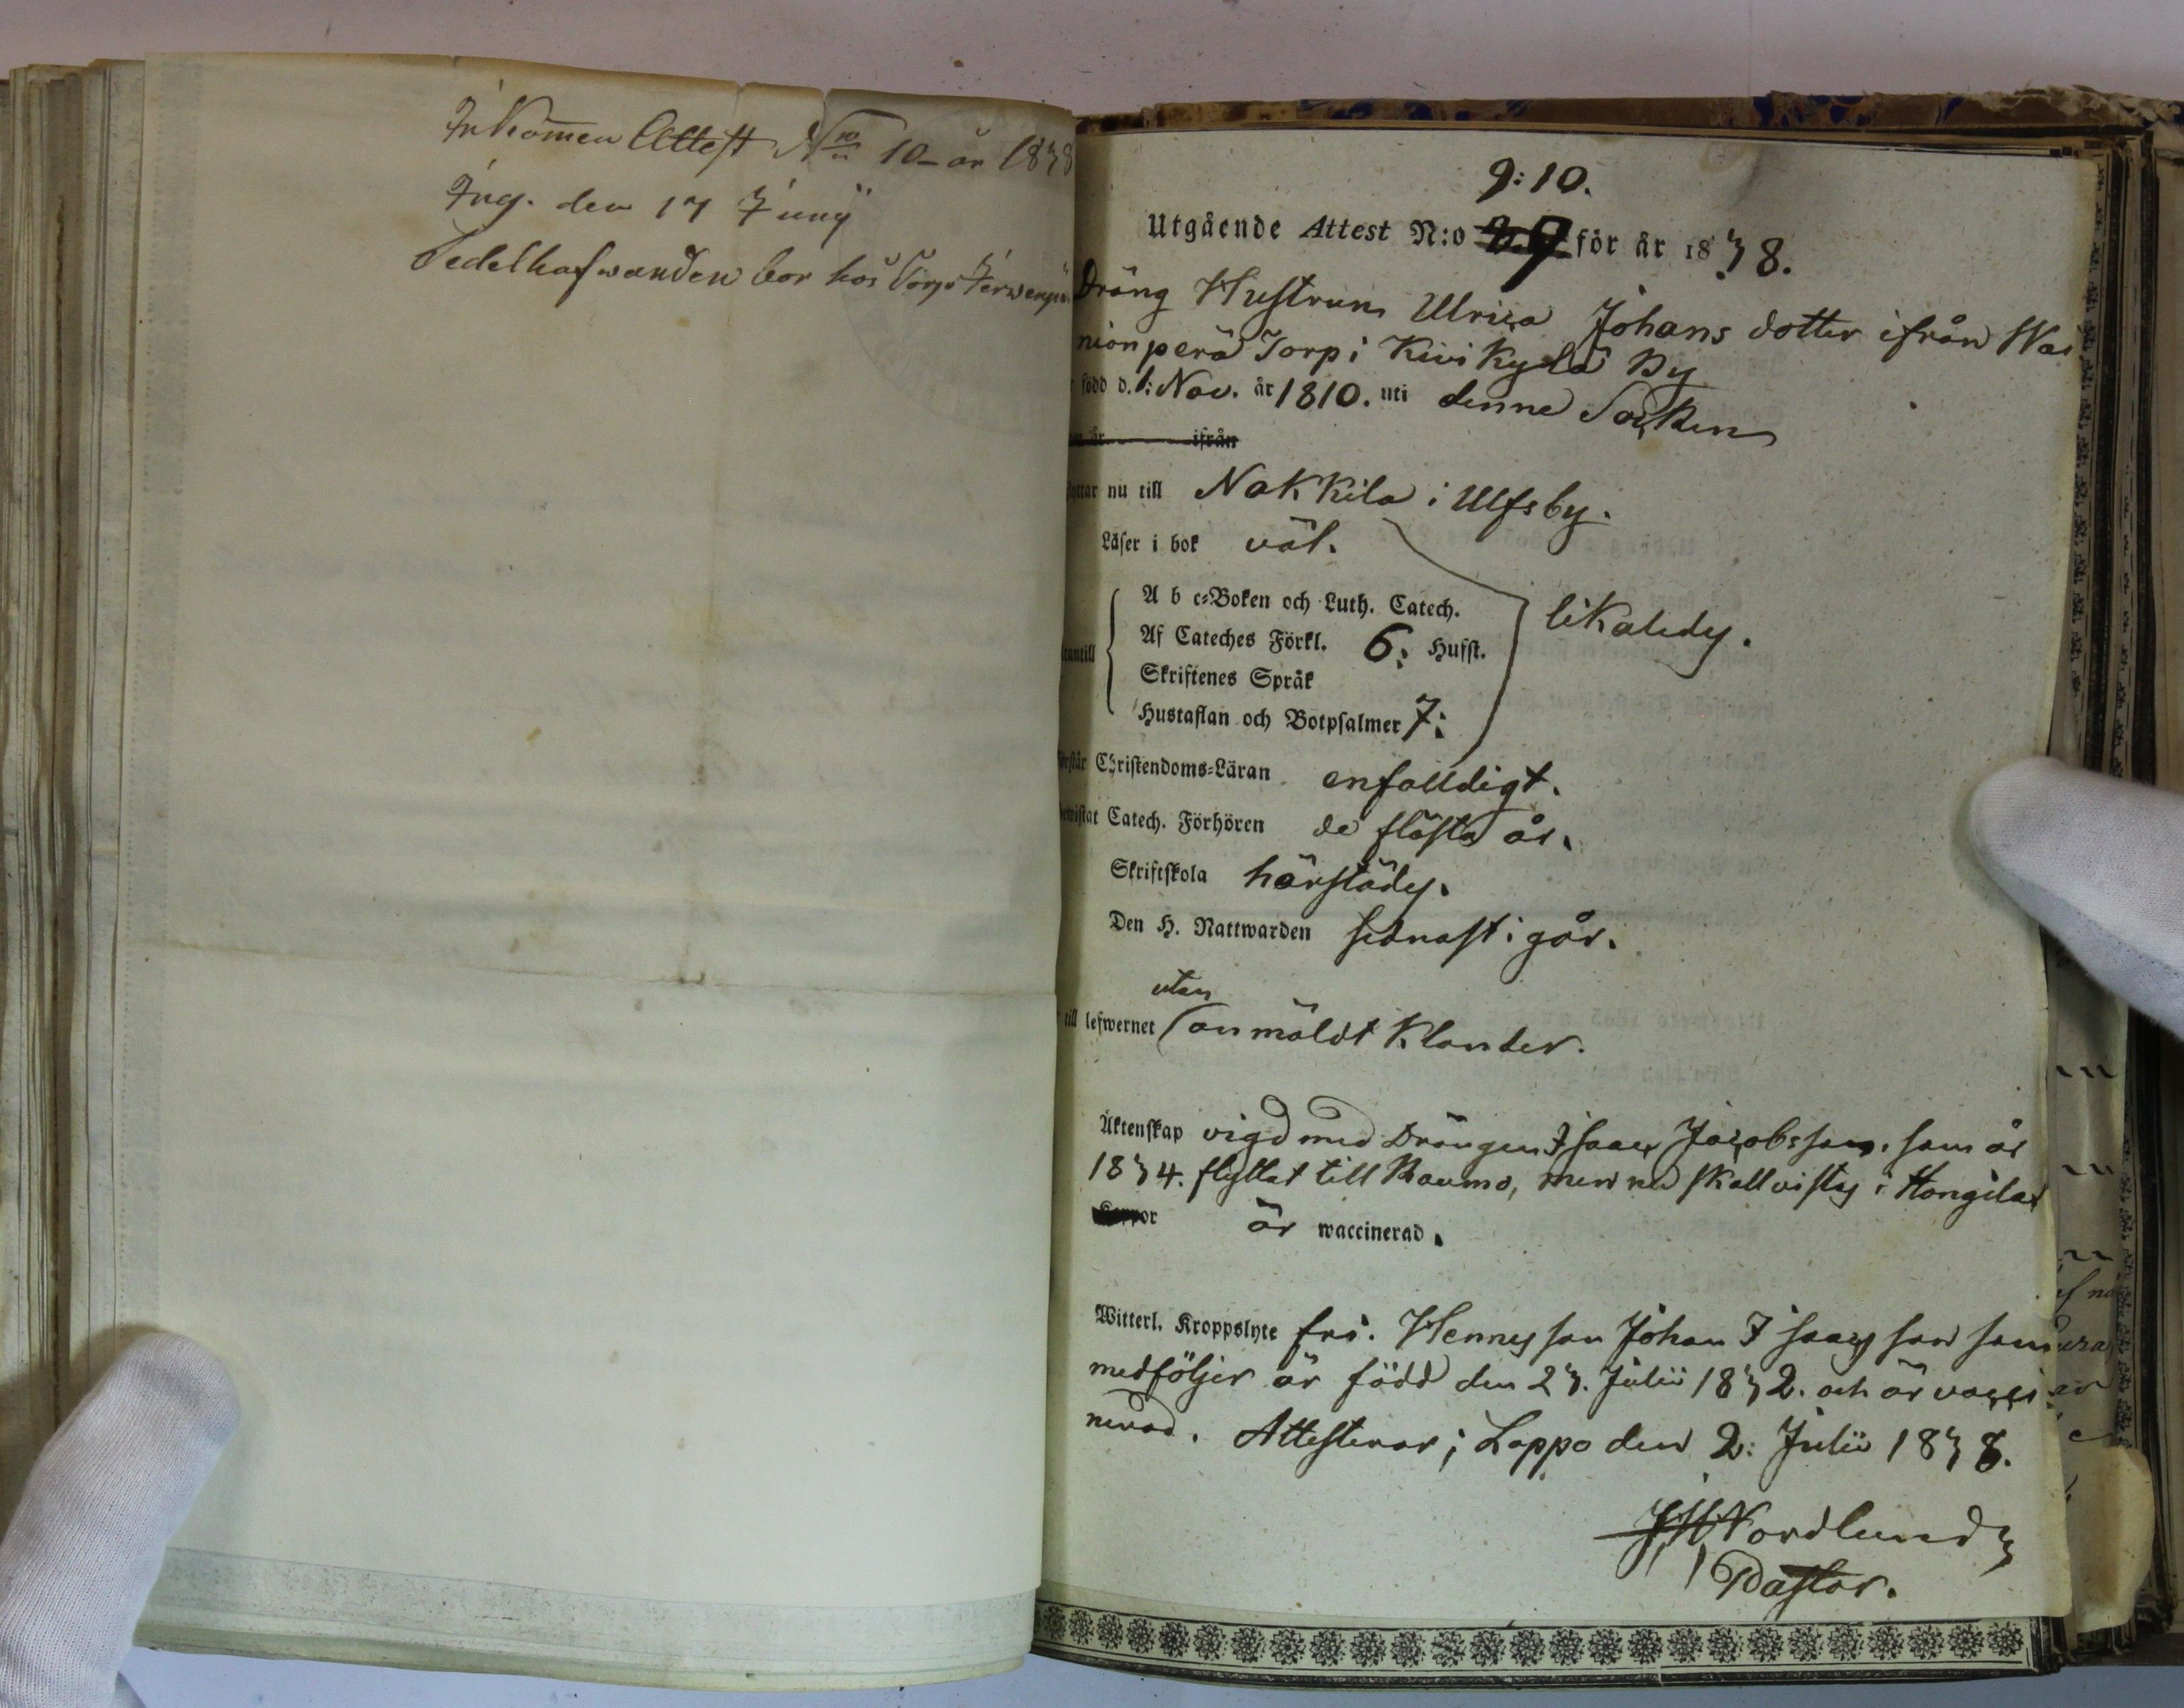 Inkommen Attest Nro 10 år 1838
Ing. den 17 Junÿ
Sedelhafwanden bor hos
9:10.
Utgående Attest N:o 9 för år 1838.
Dräng Hustrun Ulrica Johans dotter ifrån Wai
niönperä Torp i Kivikylä By
född d. 1: Nov. år 1810. uti denne Socken
år ifrån
nu till Nakkila i Ulfsby.
Läser i bok väl.
A b c-Boken och Luth. Catech.
Af Cateches Förkl. 6: Hufst.
likaledes.
Skriftenes Språk
Hustaflan och Botpsalmer 7:
Christendoms-Läran enfalldigt.
Catech. Förhören de flästa år.
Skriftskola härstädes.
Den H. Nattwarden sednast i går.
utan
till lefwernet anmäldt Klander.
Äktenskap vigd med Drängen Isaac Jacobsson, som år
1834. flyttat till Raumo, men nu skall vistas i Hongila
är waccinerad.
Witterl. Kroppslyte fri. Hennes son Johan Isaacs son som
medföljer är född den 23. Julii 1832. och är vacci
nerad. Attesterar; Lappo den 2: Julii 1838.
Nordlund
Pastor.